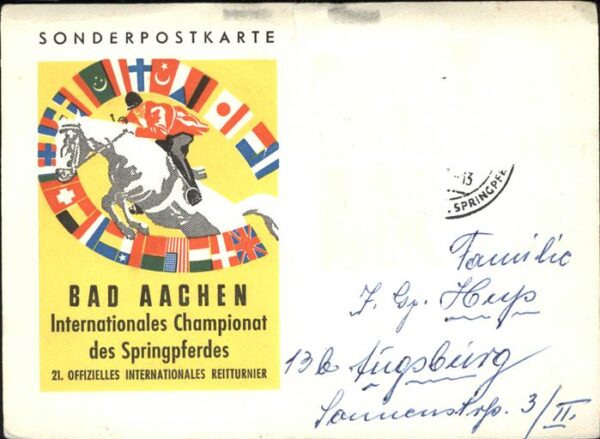 SONDERPOSTKARTE
BAD AACHEN
Internationales Championat
des Springpferdes
21. OFFIZIELLES INTERNATIONALES REITTURNIER
-13
. SPRINGPFE
Familie
J. Gg.
13b Augsburg
Sonnenstr. 3/II.